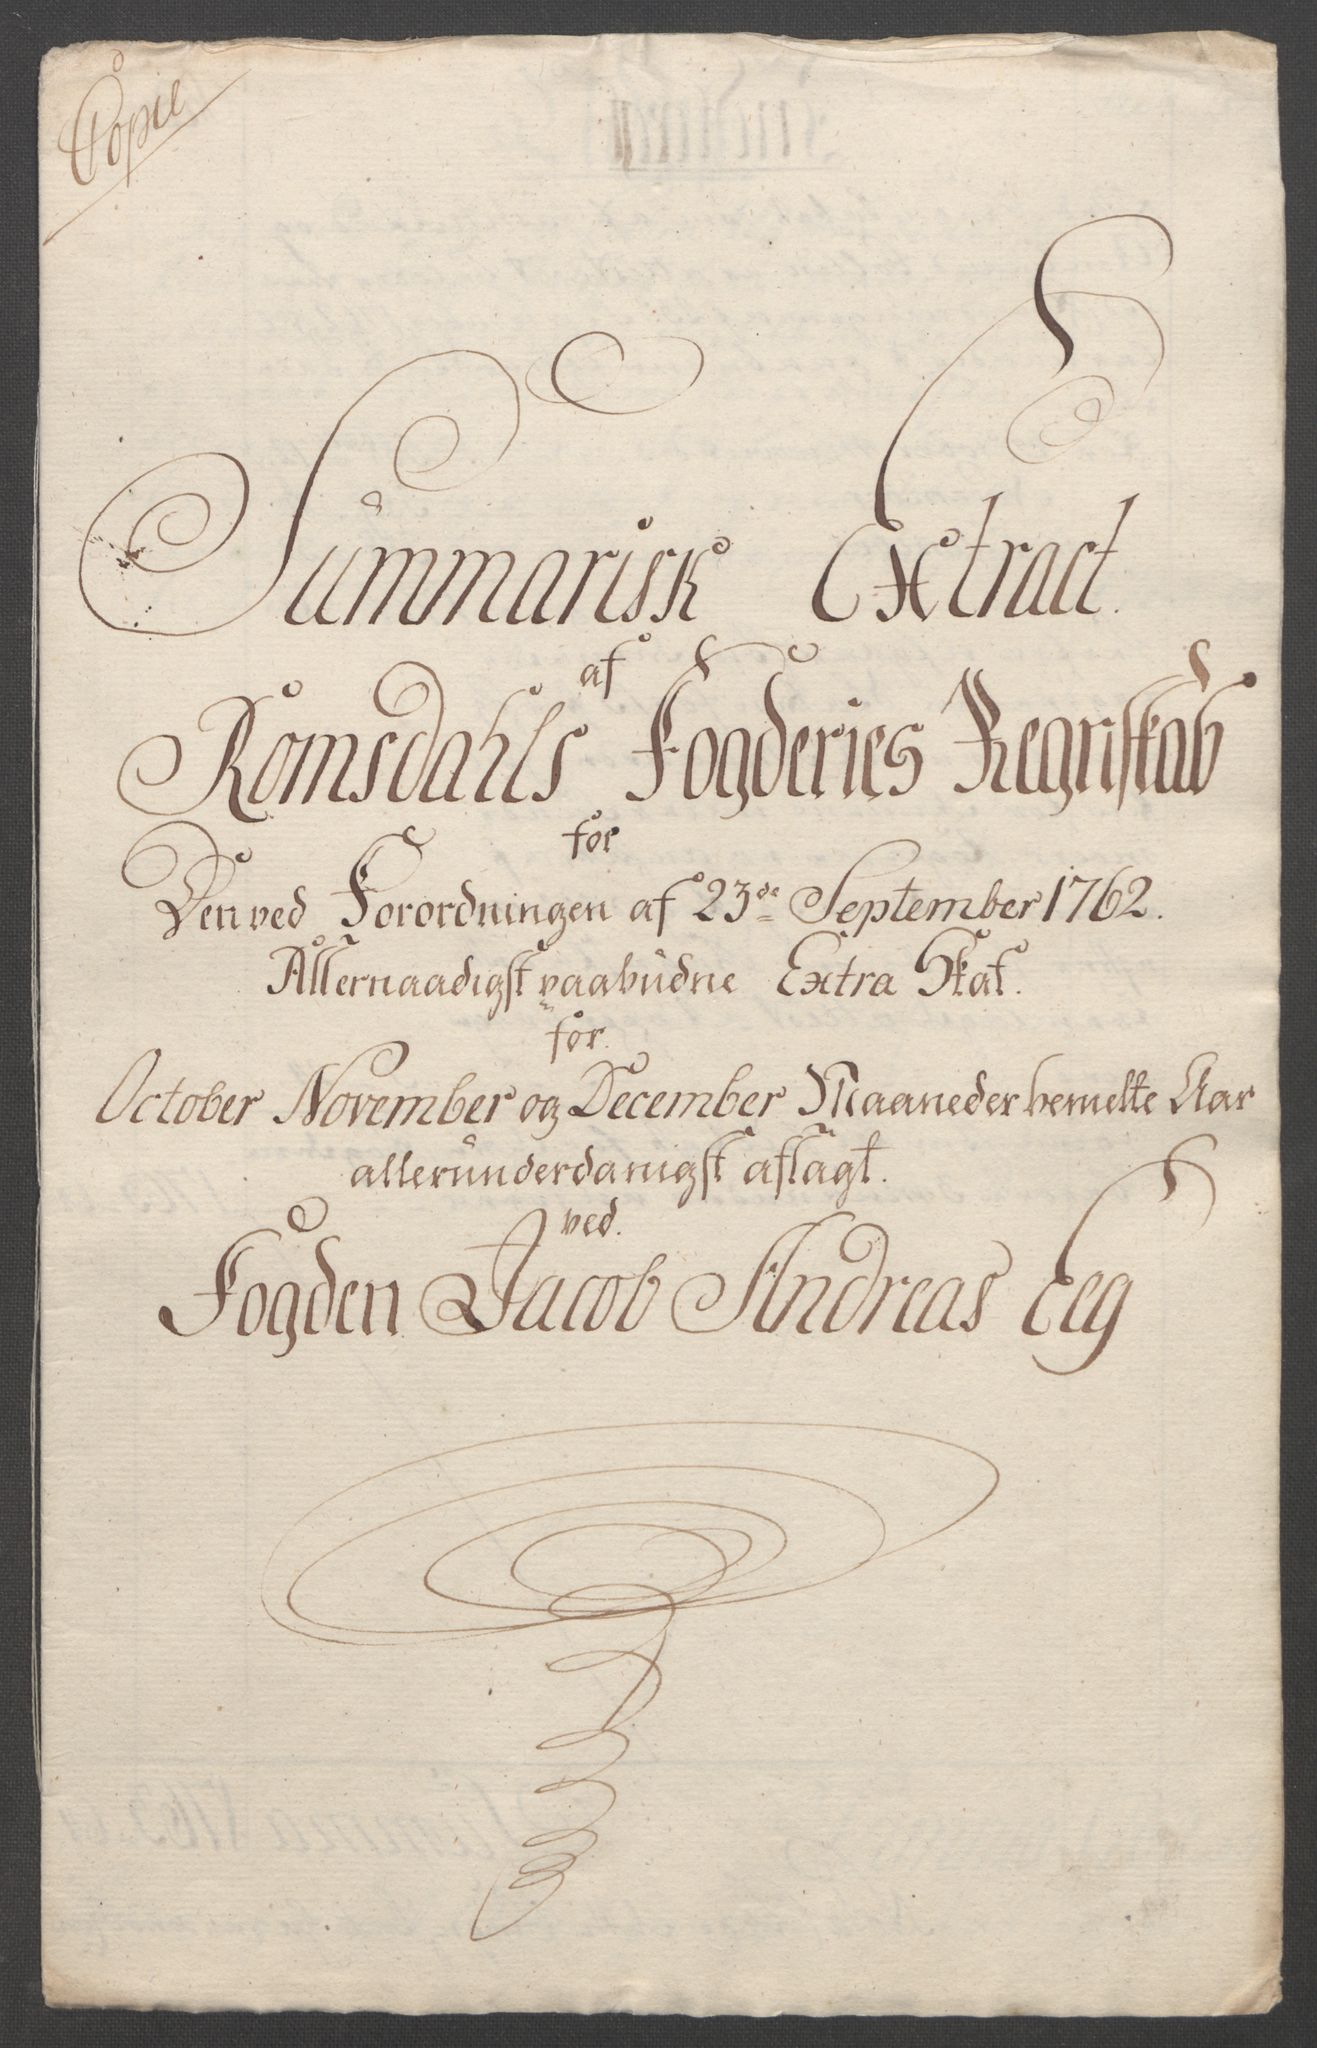 Copie
Summarisk Extract.
af
Romsdahls Fogderies Regnskab
for
Den ved Forordningen af 23de September 1762.
Allernaadigst paabudne Extra Skat.
for.
October November og December Maaneder bemelte Aar
allerunderdanigst aflagt.
ved.
Fogden Jacob Andreas Eeg